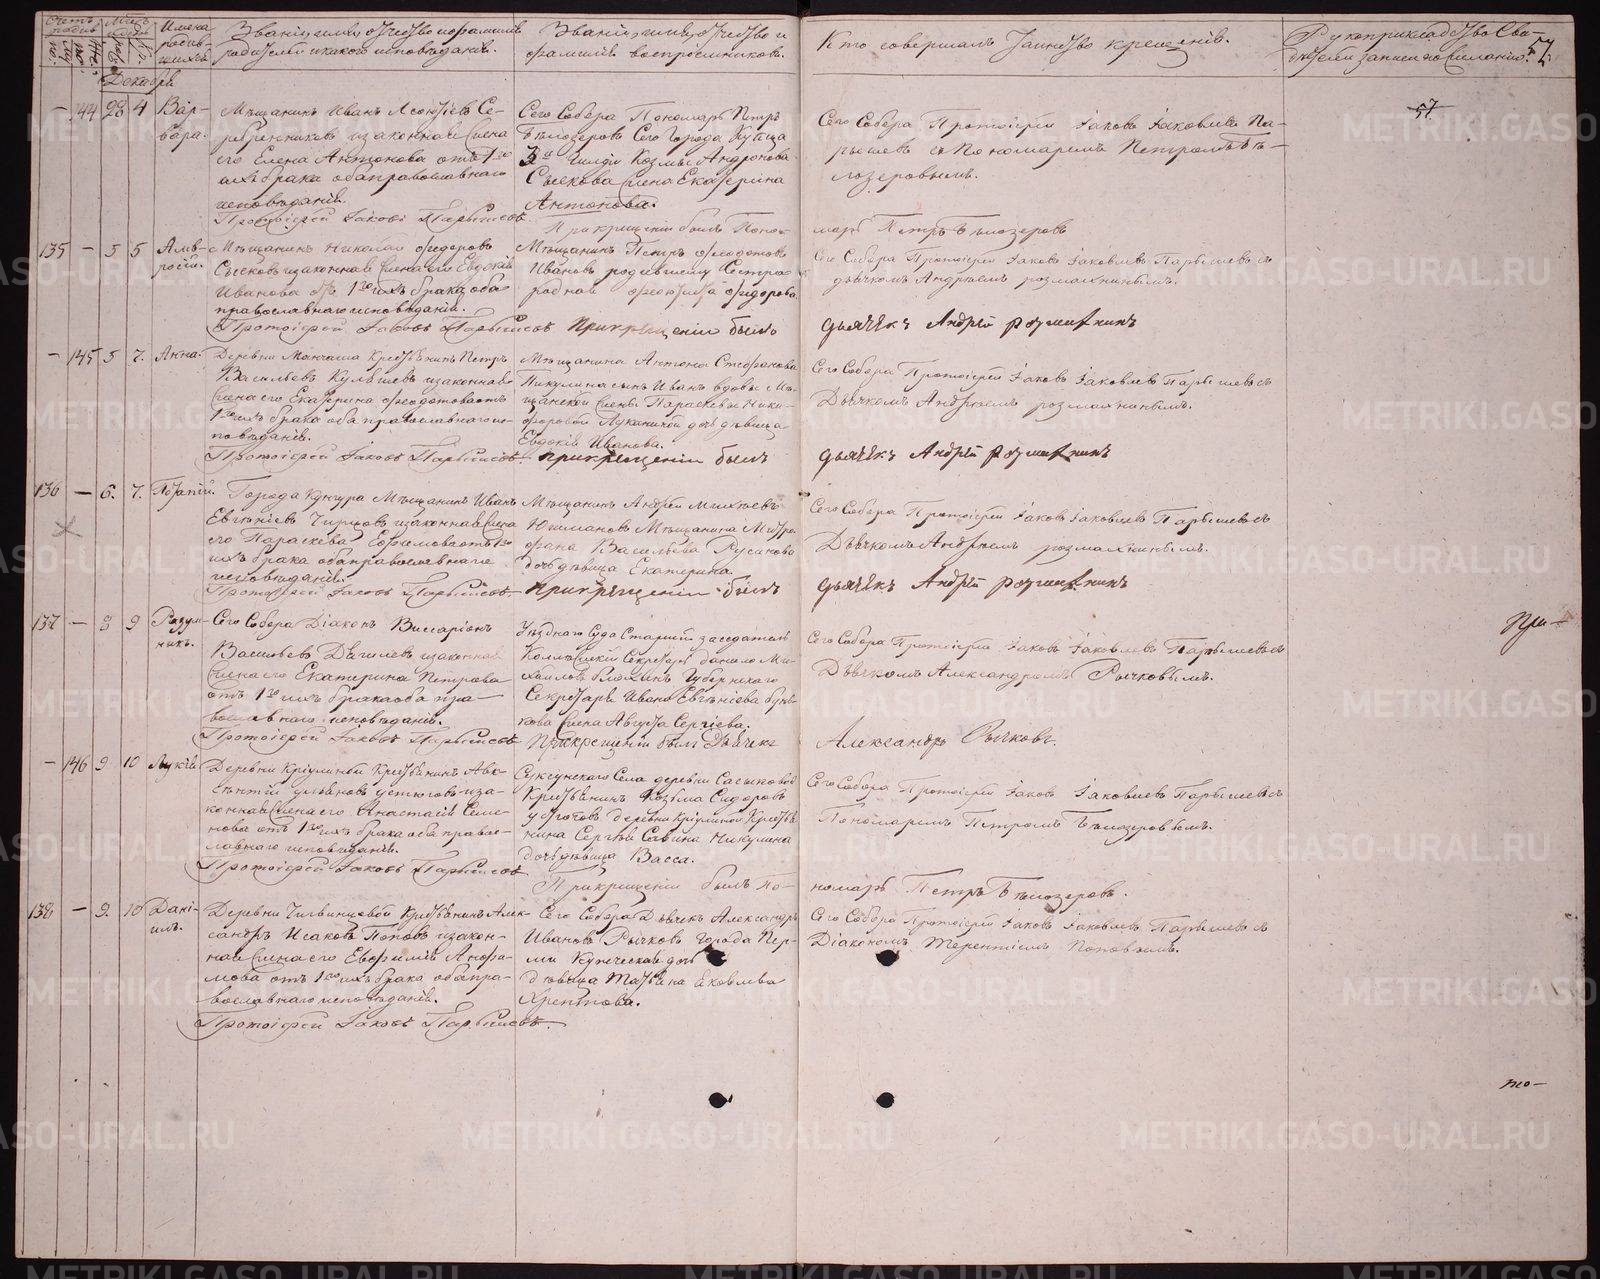 Счетъ родив.
Мѣс. и день
Имена родив-
шихся
Званіе, имя, отчество и фамилія
родителей и какого исповѣданія.
Званіе, имя, отчество и
фамилія воспріемниковъ.
Кто совершалъ Таинство крещенія.
Рукоприкладство Сви-
дѣтелей записи по желанію.
57
57
Декабрь
— 144 28 4 Вар-
вара.
Мѣщанинъ Иванъ Леонтіевъ Се-
ребренниковъ и законная жена
его Елена Антонова отъ 1го
ихъ брака оба православнаго
исповѣданія.
Протоіерей Іаковъ Парышевъ
Сего Собора Пономарь Петръ
Бѣлозеровъ Сего Города Купца
3й Гилдіи Козмы Андронова
Сыскова жена Екатерина
Антонова.
При крещеніи былъ Поно-
Сего Собора Протоіерей Іаковъ Іаковлевъ Па-
рышевъ съ Пономаремъ Петромъ Бѣ-
лозеровымъ.
марь Петръ Бѣлозеровъ
135 — 5 5 Амв-
росій.
Мѣщанинъ Николай Федоровъ
Сысковъ и законная жена его Евдокія
Иванова отъ 1го ихъ брака оба
православнаго исповѣданія.
Протоіерей Іаковъ Парышевъ
Мѣщанинъ Петръ Федотовъ
Ивановъ родившему Сестра
родная Федорова.
При крещеніи былъ
Сего Собора Протоіерей Іаковъ Іаковлевъ Парышевъ съ
дьячкомъ Андреемъ Розмахнинымъ.
дьячекъ Андрей Розмахнинъ
— 145 5 7. Анна.
Деревни Крестьянинъ Петръ
Васильевъ Кулышевъ и законная
жена его Екатерина Федотова отъ
1го ихъ брака оба православнаго ис-
повѣданія.
Протоіерей Іаковъ Парышевъ.
Мѣщанина Антона Стефанова
Пикулина сынъ Иванъ вдовы Мѣ-
щанской жены Параскевы Ники-
форовой дочь дѣвица
Евдокія Иванова.
При крещеніи былъ
Сего Собора Протоіерей Іаковъ Іаковлевъ Парышевъ съ
Дьячкомъ Андреемъ Розмахнинымъ.
дьячекъ Андрей Розмахнинъ
136 — 6. 7. Потапій.
Города Кунгура Мѣщанинъ Иванъ
Евгеніевъ Чирцовъ и законная жена
его Параскева Ефимова отъ 1го
ихъ брака оба православнаго
исповѣданія.
Протоіерей Іаковъ Парышевъ.
Мѣщанинъ Андрей Михѣевъ
Юшмановъ Мѣщанина Митро-
фана Васильева Русинова
дочь дѣвица Екатерина.
При крещеніи былъ
Сего Собора Протоіерей Іаковъ Іаковлевъ Парышевъ съ
Дьячкомъ Андреемъ Розмахнинымъ.
дьячекъ Андрей Розмахнинъ
137 — 8 9 Разум-
никъ.
Сего Собора Діаконъ Виссаріонъ
Васильевъ Дягилевъ и законная
жена его Екатерина Петрова
отъ 1го ихъ брака оба пра-
вославнаго исповѣданія.
Протоіерей Іаковъ Парышевъ
Уѣзднаго Суда Старшій засѣдатель
Коллежскій Секретарь Данило Ми-
хайловъ Губернскаго
Секретаря Ивана Евгеніева
жена Августа Сергіева.
При крещеніи былъ Дьячекъ
Сего Собора Протоіерей Іаковъ Іаковлевъ Парышевъ съ
Дьячкомъ Александромъ Рычковымъ.
Александръ Рычковъ.
При-
— 146 9. 10 Лукія
Деревни Кріулиной Крестьянинъ Авк-
сентій Ульяновъ Устюговъ и за-
конная жена его Анастасія Семе-
нова отъ 1го ихъ брака оба правос-
лавнаго исповѣданія.
Протоіерей Іаковъ Парышевъ
Суксунскаго Села деревни Сасыковой
Крестьянинъ Козьма Сидоровъ
деревни Кріулиной Кресть-
нина Сергѣя Савина Никулина
дочь дѣвица Васса.
При крещеніи былъ По-
Сего Собора Протоіерей Іаковъ Іаковлевъ Парышевъ съ
Пономаремъ Петромъ Бѣлозеровымъ.
номарь Петръ Бѣлозеровъ.
138 — 9. 10 Дані-
илъ.
Деревни Чигвинцевой Крестьянинъ Алек-
сандръ Исаковъ Поповъ и закон-
ная жена его Евфимія Анфа-
лова отъ 1го ихъ брака оба пра-
вославнаго исповѣданія.
Протоіерей Іаковъ Парышевъ.
Сего Собора Дьячекъ Александръ
Ивановъ Рычковъ Города Пер-
ми Купеческая дочь
дѣвица Татьяна Яковлева
Хрептова.
Сего Собора Протоіерей Іаковъ Іаковлевъ Парышевъ съ
Діакономъ Терентіемъ Поповымъ.
то-
METRIKI.GASO-URAL.RU